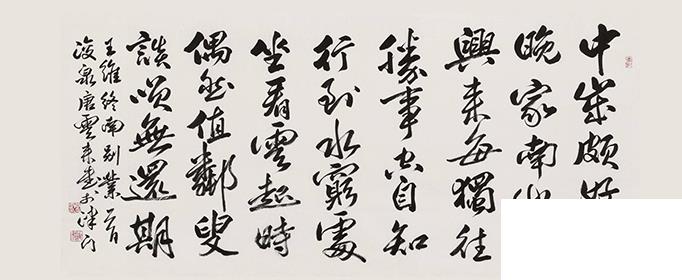 中歲頗好
晚家南山
興来每獨往
勝事空自知
行到水窮處
坐看雲起時
偶然值鄰叟
談笑無還期
王維終南別業一首
浚泉唐雲来書於津門